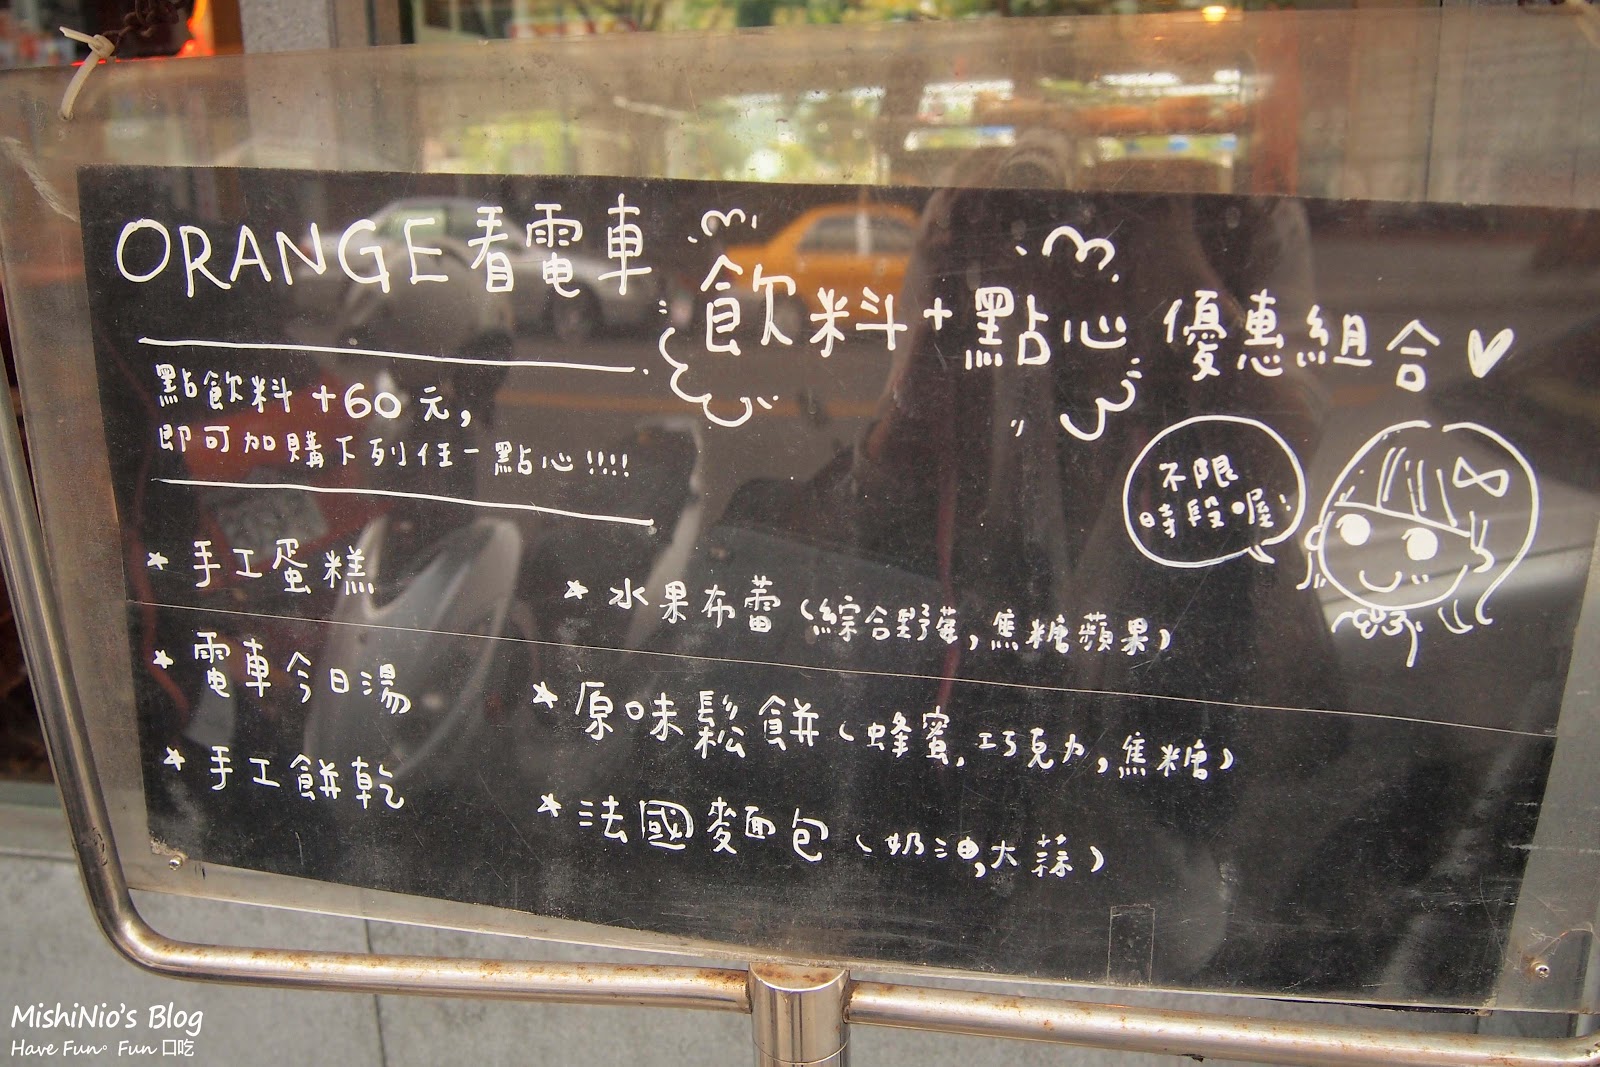 ORANGE看電車
飲料+點心 優惠組合
點飲料+60元,
即可加購下列任一點心!!!!
不限
時段喔!
手工蛋糕
電車今日湯
手工餅乾
水果布蕾(綜合野莓,焦糖蘋果)
原味鬆餅(蜂蜜,巧克力,焦糖)
法國麵包(奶油,大蒜)
MishiNio's Blog
Have Fun。Fun 口吃